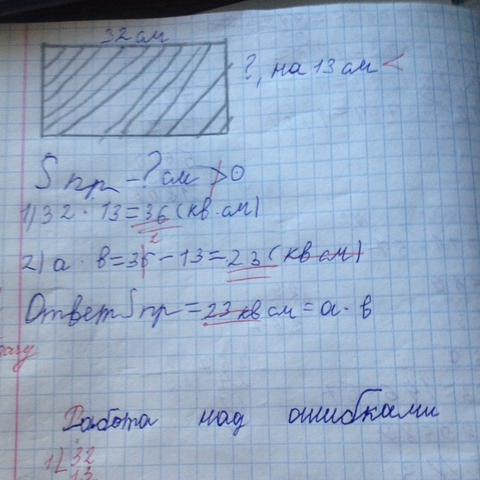 32 см
?, на 13 см <
S пр - ? см > 0
1) 32 · 13 = 36 (кв. см)
2
2) а · в = 36 - 13 = 23 (кв см)
Ответ S пр = 23 кв см = а · в
Работа над ошибками
1) 32
13